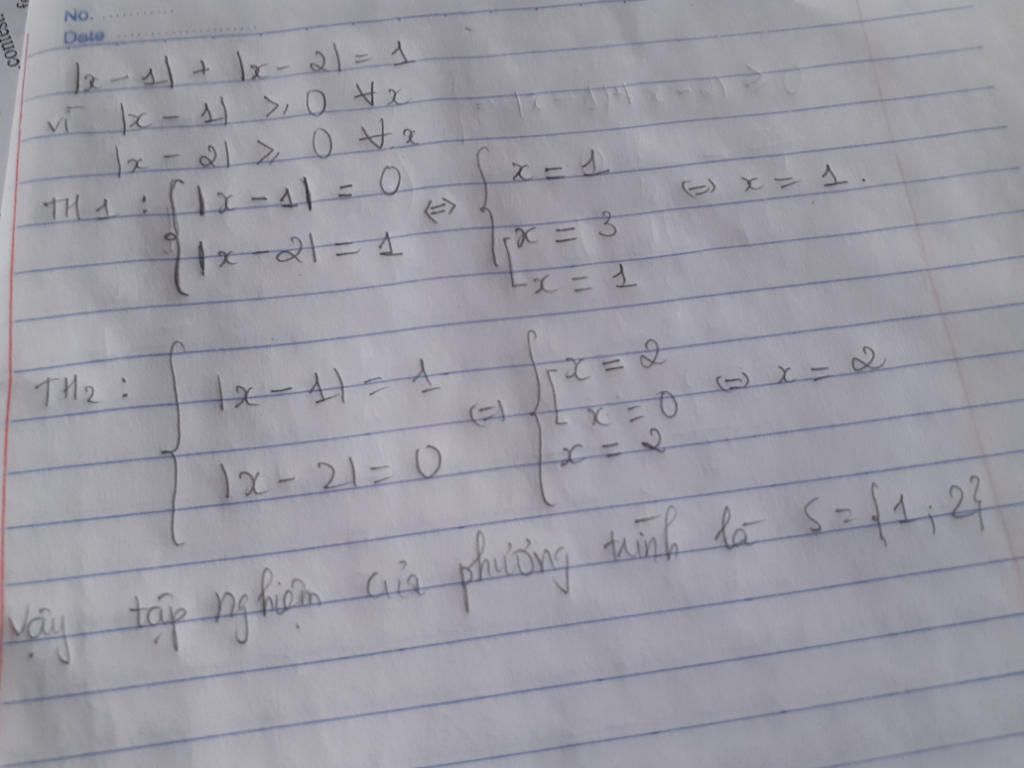 No.
Date
|x - 1| + |x - 2| = 1
vì |x - 1| ⩾ 0 ∀x
|x - 2| ⩾ 0 ∀x
TH1 : { |x - 1| = 0 ⇔ { x = 1 ⇔ x = 1.
|x - 2| = 1 [ x = 3
x = 1
TH2 : { |x - 1| = 1 ⇔ { [ x = 2 ⇔ x = 2
x = 0
|x - 2| = 0 x = 2
Vậy tập nghiệm của phương trình là S = {1; 2}